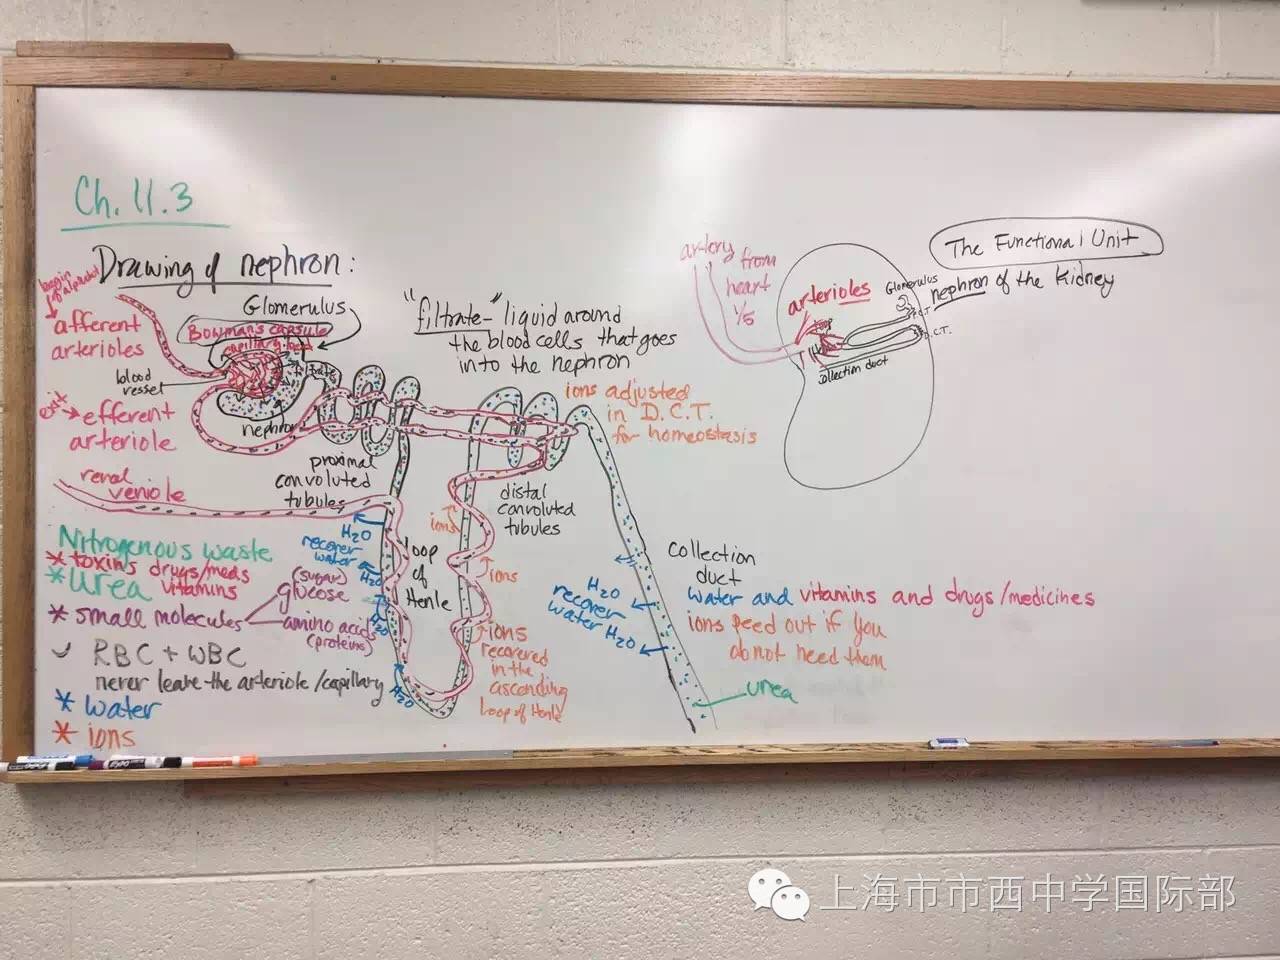 Ch. 11.3
Drawing of nephron:
afferent
arterioles
Glomerulus
Bowman's capsule
capillary bed
filtrate
blood
vessel
nephron
exit
efferent
arteriole
renal
veniole
proximal
convoluted
tubules
"filtrate-" liquid around
the blood cells that goes
into the nephron
ions adjusted
in D.C.T.
for homeostasis
distal
convoluted
tubules
loop
of
Henle
H2O
recover
water
H2O
H2O
H2O
ions
ions
ions
recovered
in the
ascending
loop of Henle
Nitrogenous waste
* toxins drugs/meds
* urea vitamins
* small molecules
(sugar)
glucose
amino acids
(proteins)
RBC + WBC
never leave the arteriole/capillary
* water
* ions
H2O
recover
water H2O
collection
duct
water and vitamins and drugs/medicines
ions peed out if you
do not need them
urea
artery
from
heart
1/5
arterioles
Glomerulus
P.C.T.
D.C.T.
collection duct
The Functional Unit
nephron of the Kidney
上海市市西中学国际部